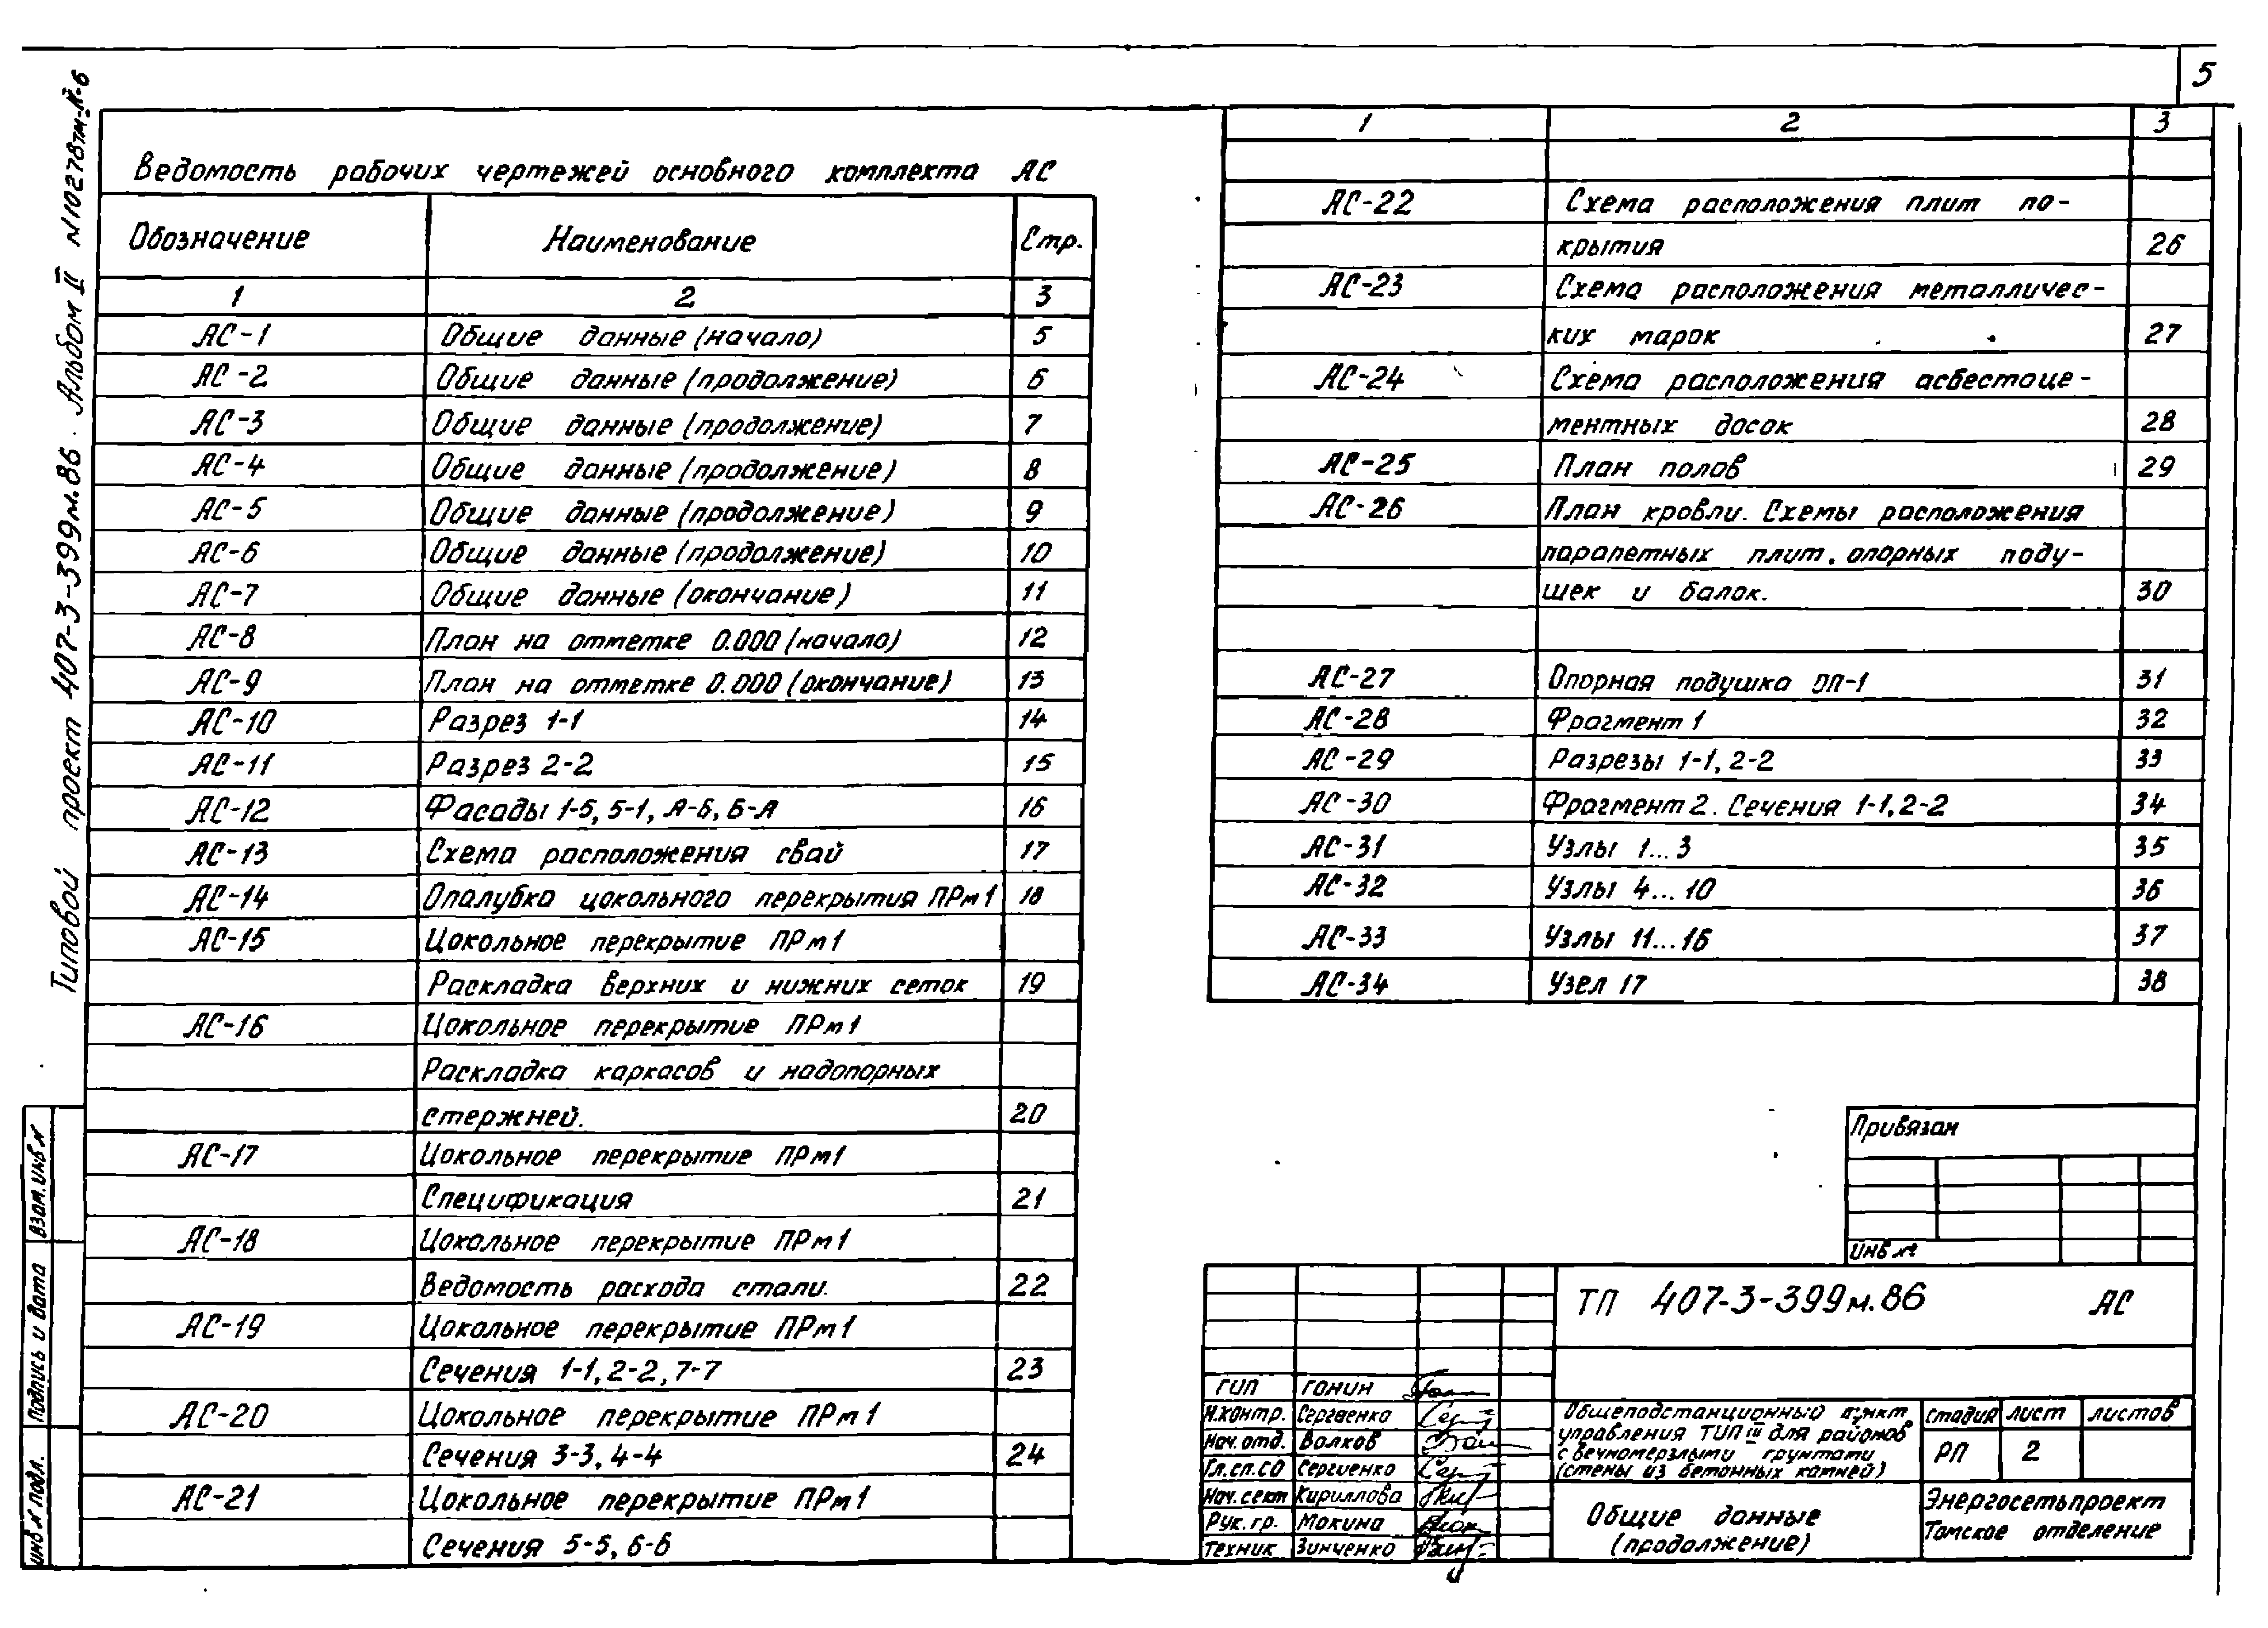 5
Типовой проект 407-3-399м.86. Альбом II N10278тм-II-6
Ведомость рабочих чертежей основного комплекта АС
Обозначение Наименование Стр.
1 2 3
АС-1 Общие данные (начало) 5
АС-2 Общие данные (продолжение) 6
АС-3 Общие данные (продолжение) 7
АС-4 Общие данные (продолжение) 8
АС-5 Общие данные (продолжение) 9
АС-6 Общие данные (продолжение) 10
АС-7 Общие данные (окончание) 11
АС-8 План на отметке 0.000 (начало) 12
АС-9 План на отметке 0.000 (окончание) 13
АС-10 Разрез 1-1 14
АС-11 Разрез 2-2 15
АС-12 Фасады 1-5, 5-1, А-Б, Б-А 16
АС-13 Схема расположения свай 17
АС-14 Опалубка цокольного перекрытия ПРм1 18
АС-15 Цокольное перекрытие ПРм1
Раскладка верхних и нижних сеток 19
АС-16 Цокольное перекрытие ПРм1
Раскладка каркасов и надопорных
стержней. 20
АС-17 Цокольное перекрытие ПРм1
Спецификация 21
АС-18 Цокольное перекрытие ПРм1
Ведомость расхода стали. 22
АС-19 Цокольное перекрытие ПРм1
Сечения 1-1, 2-2, 7-7 23
АС-20 Цокольное перекрытие ПРм1
Сечения 3-3, 4-4 24
АС-21 Цокольное перекрытие ПРм1
Сечения 5-5, 6-6
1 2 3
АС-22 Схема расположения плит по-
крытия 26
АС-23 Схема расположения металличес-
ких марок 27
АС-24 Схема расположения асбестоце-
ментных досок 28
АС-25 План полов 29
АС-26 План кровли. Схемы расположения
парапетных плит, опорных поду-
шек и балок. 30
АС-27 Опорная подушка ОП-1 31
АС-28 Фрагмент 1 32
АС-29 Разрезы 1-1, 2-2 33
АС-30 Фрагмент 2. Сечения 1-1, 2-2 34
АС-31 Узлы 1...3 35
АС-32 Узлы 4...10 36
АС-33 Узлы 11...16 37
АС-34 Узел 17 38
Привязан
Инв №
ТП 407-3-399м.86 АС
ГИП Гонин
Н.контр. Сергиенко
Нач.отд. Волков
Гл.сп.СО Сергиенко
Нач.сект Кириллова
Рук.гр. Мокина
Техник Зинченко
Общеподстанционный пункт
управления ТИП III для районов
с вечномерзлыми грунтами
(стены из бетонных камней)
стадия лист листов
РП 2
Общие данные
(продолжение)
Энергосетьпроект
Томское отделение
Взам.инв№
Подпись и дата
инв № подл.